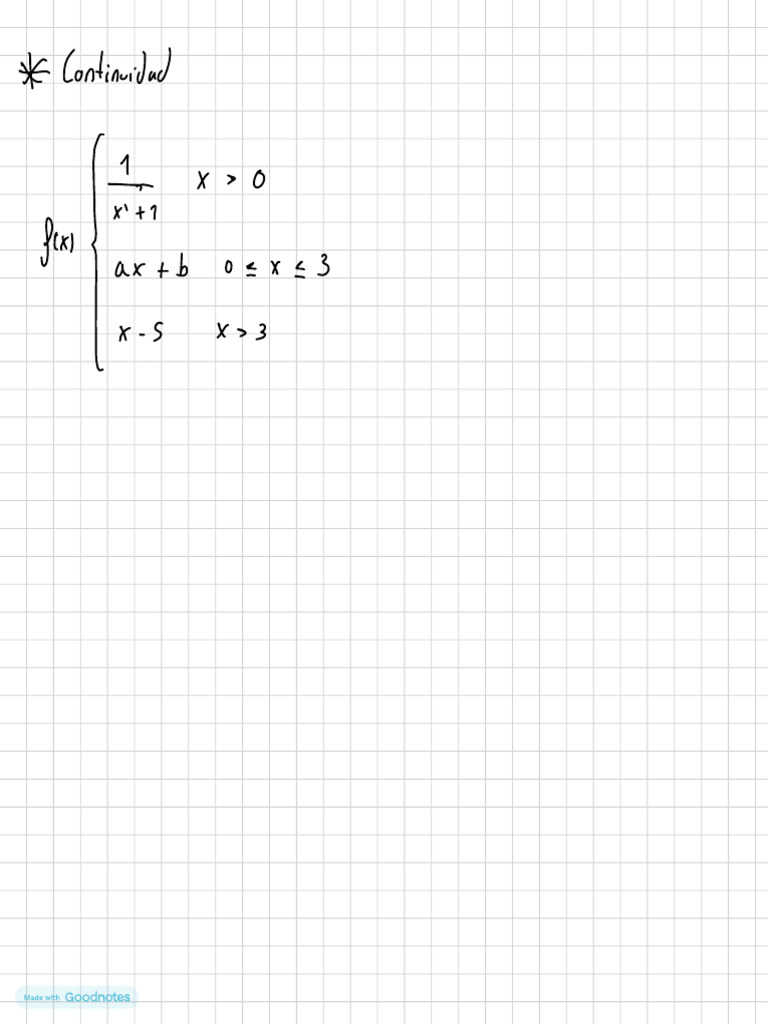 * Continuidad
1
x > 0
x¹ + 1
f(x)
ax + b 0 ≤ x ≤ 3
x - 5 x > 3
Made with Goodnotes